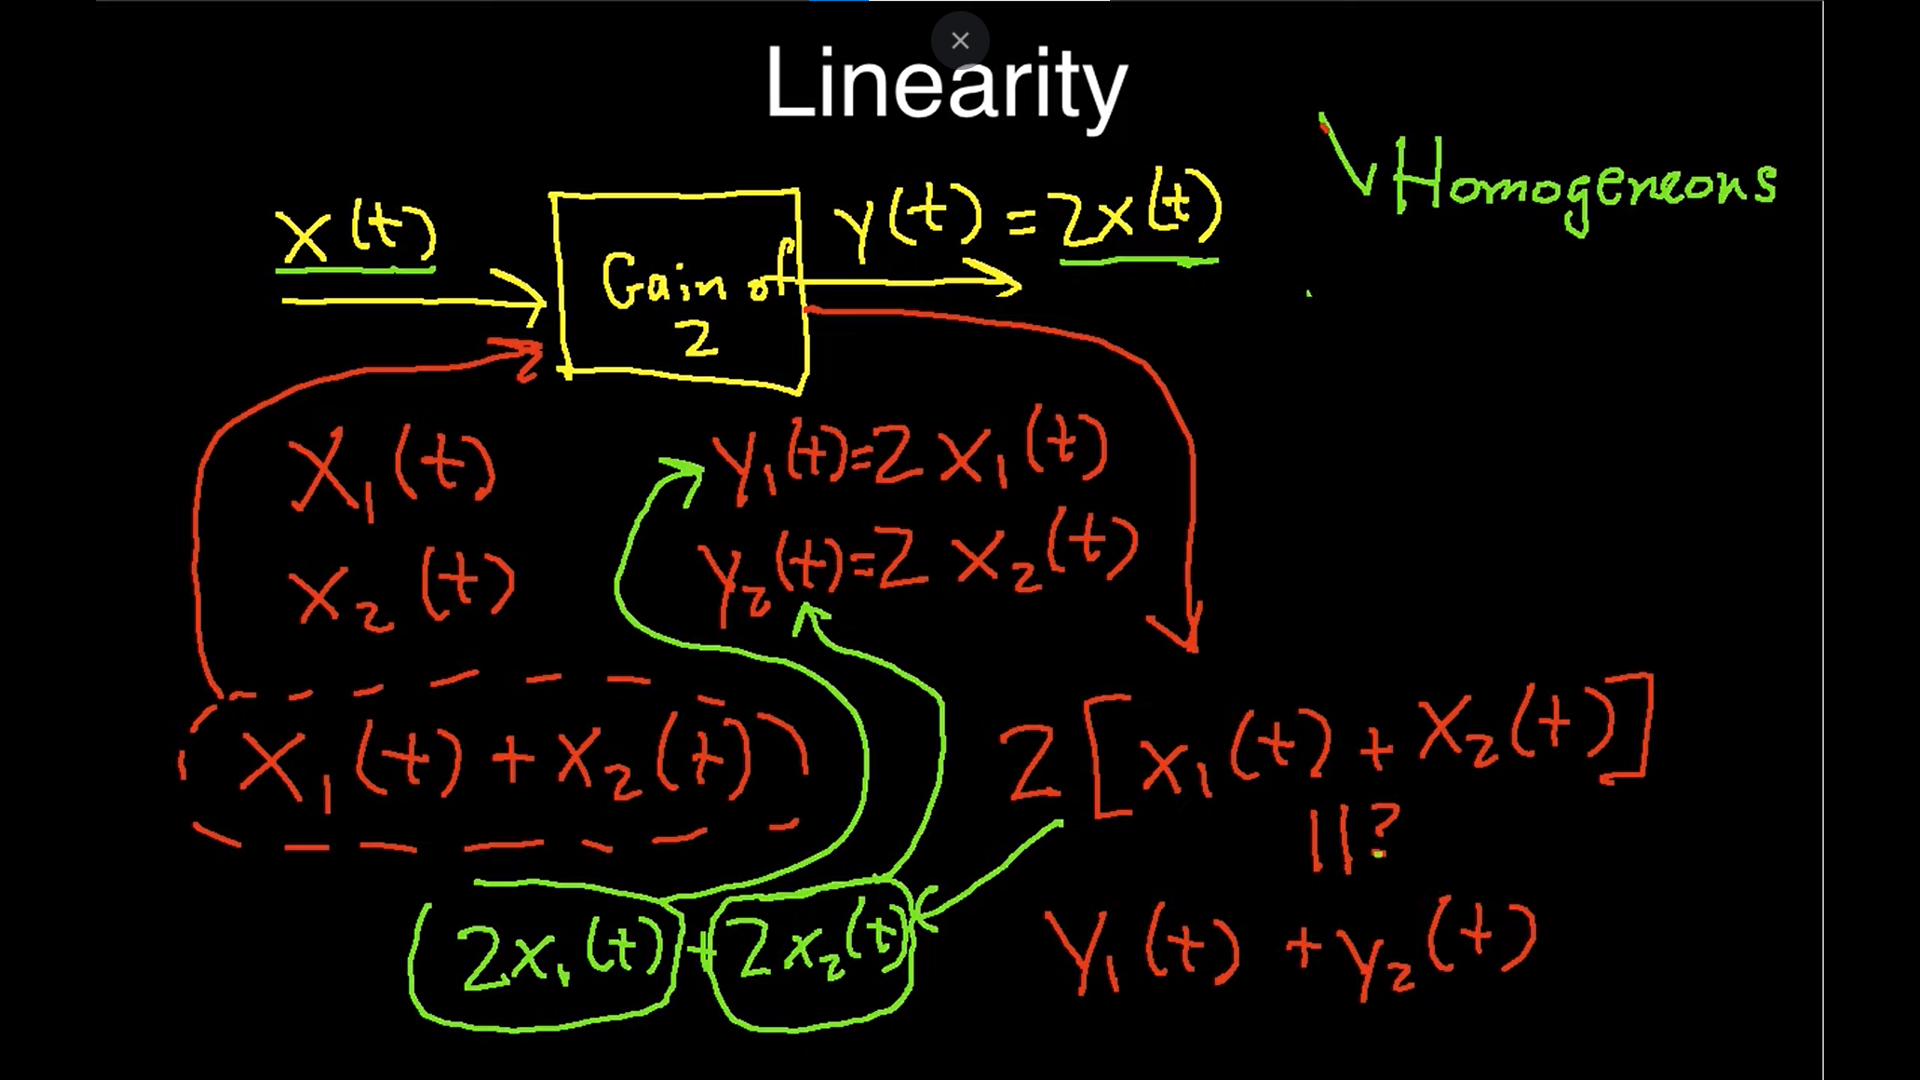 Linearity
Homogeneons
x(t)
Gain of
2
y(t) = 2x(t)
x₁(t)
y₁(t)=2x₁(t)
x₂(t)
y₂(t)=2x₂(t)
x₁(t) + x₂(t)
2[x₁(t) + x₂(t)]
||?
2x₁(t) + 2x₂(t)
y₁(t) + y₂(t)